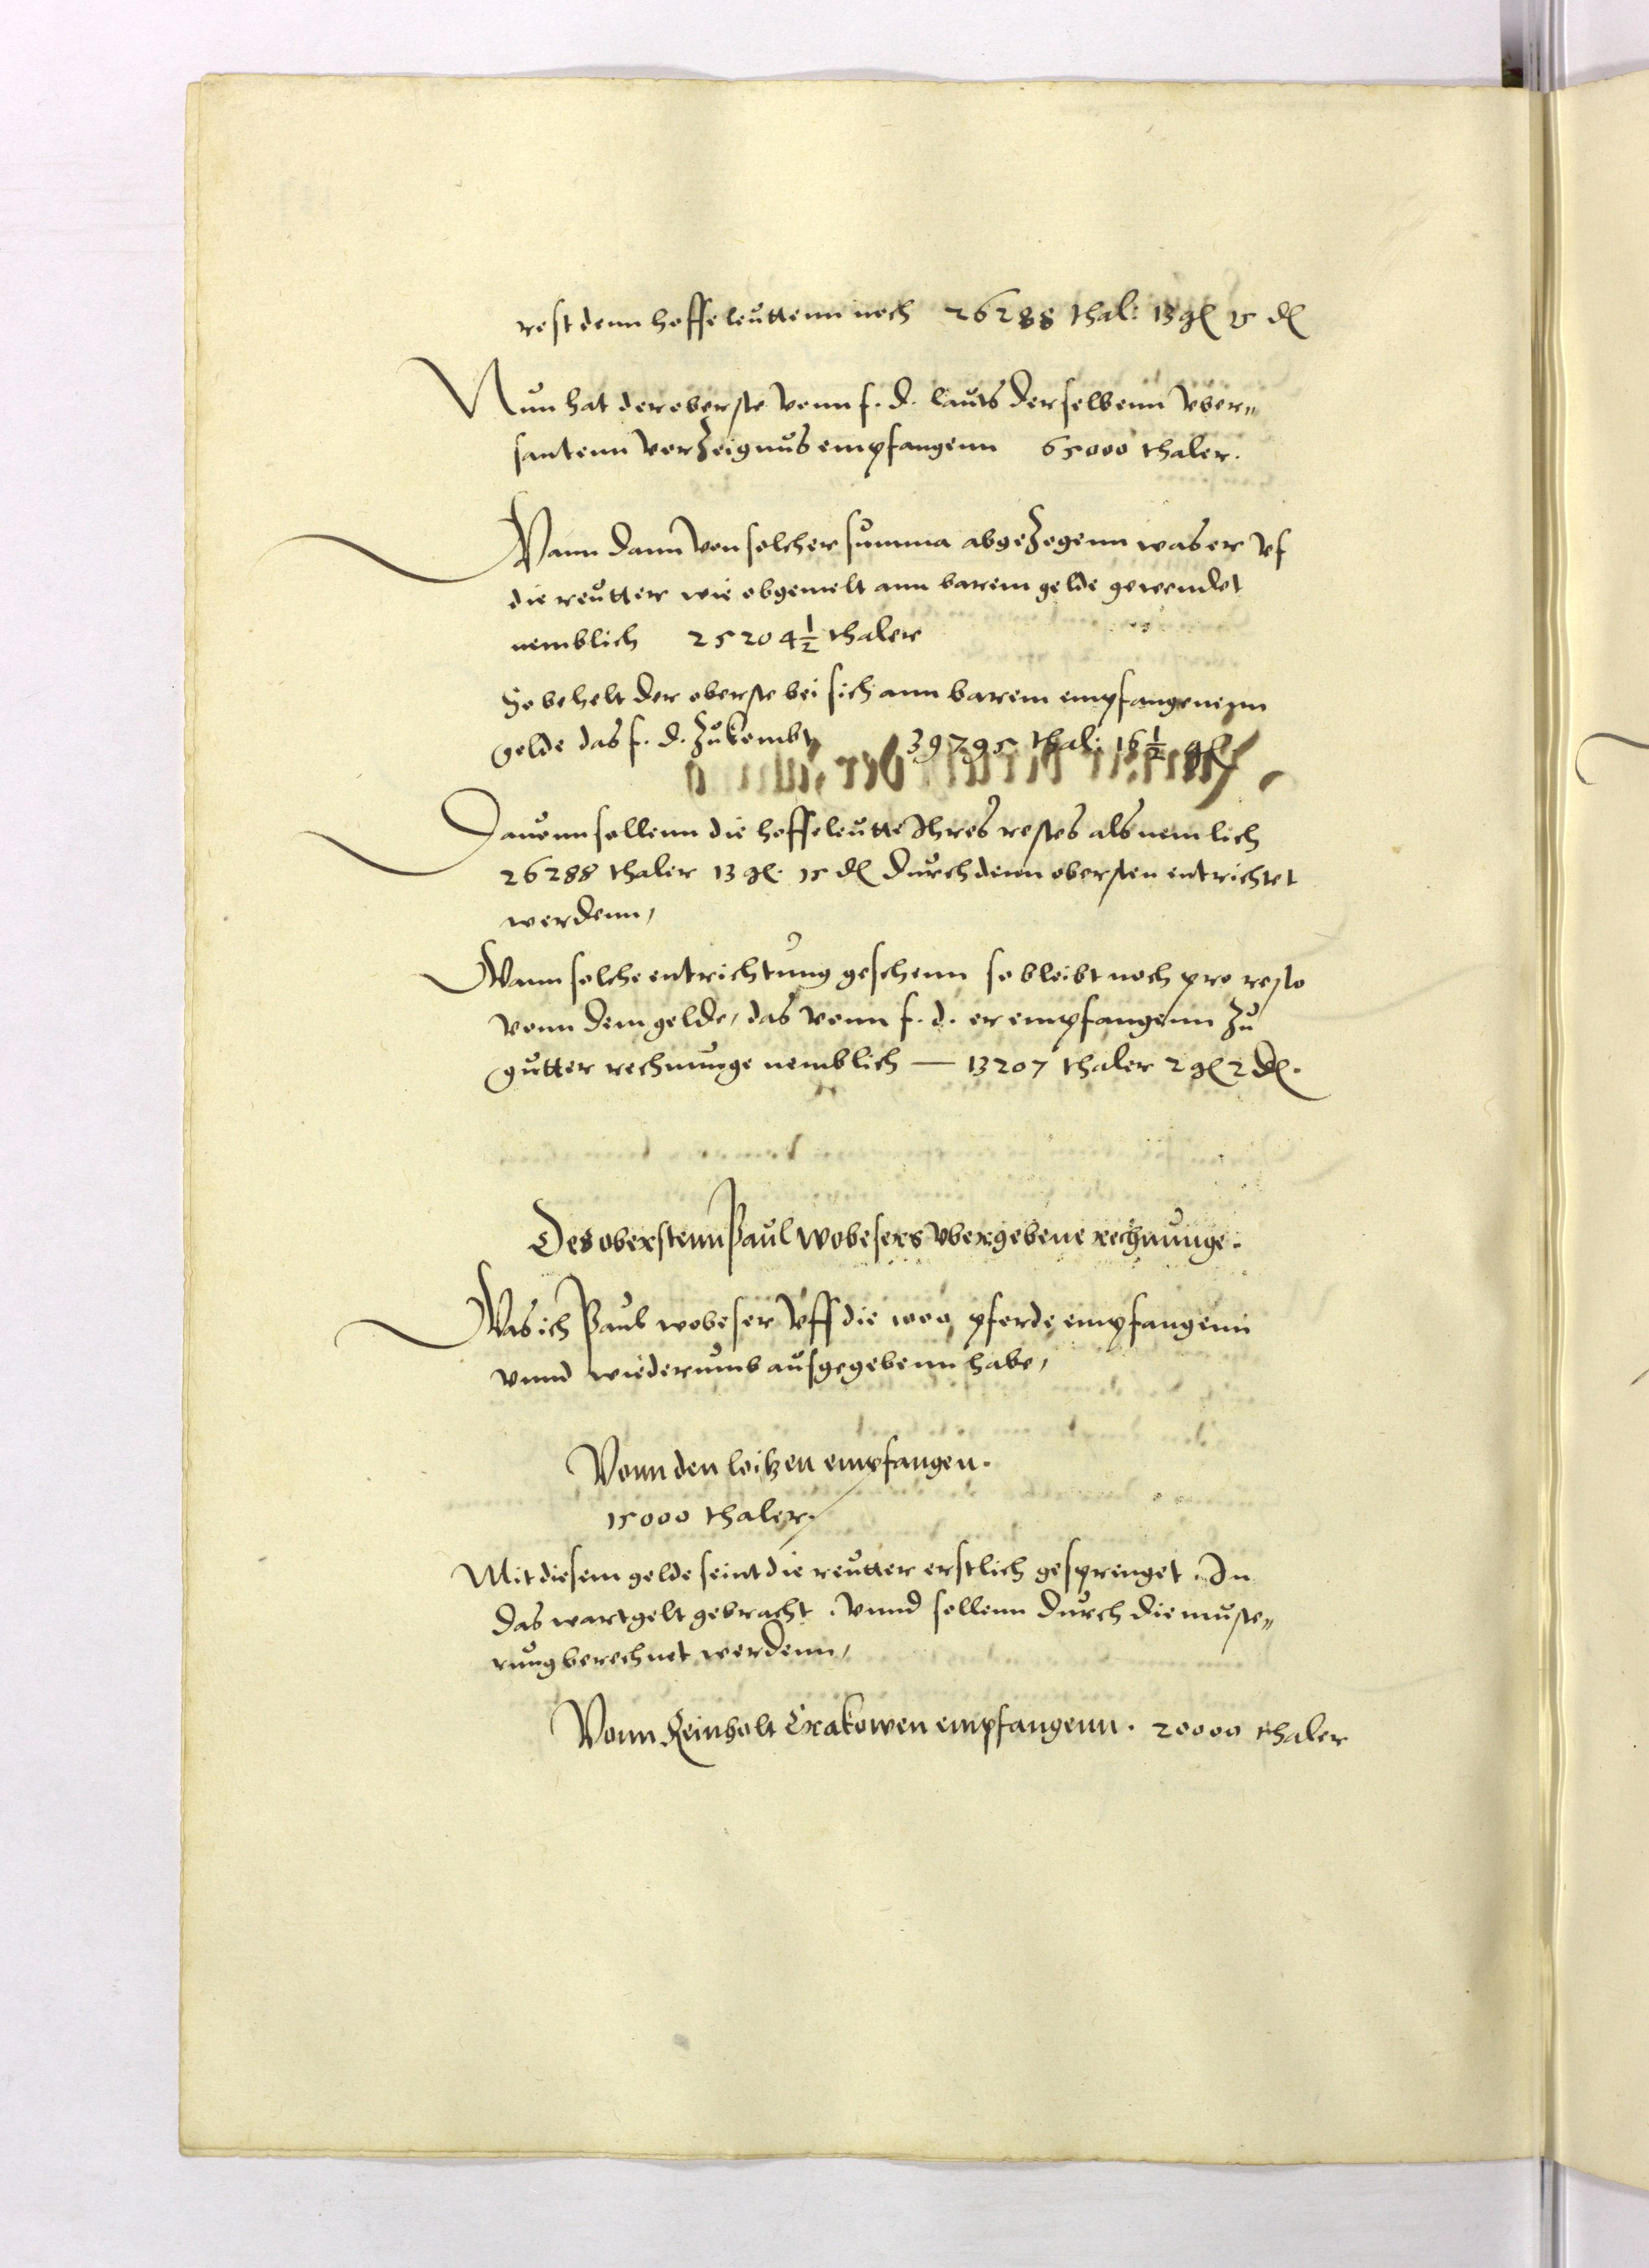 rest denn hoffeleuttenn noch 26288 thal: 13 gl 15 dl
Nun hat der oberste vonn f. d. lauts derselbenn vber„
santenn verzeignus empfangenn 65000 thaler.
Wann dann von solcher summa abgezogenn was er vf
die reutter wie obgemelt ann barem gelde gewendet
nemblich 25204 1/2 thaler
So behelt der oberste bei sich ann barem empfangenenn
gelde das f. d. zukombt 39795 thal: 16 1/2 gl
Dauonn sollenn die hoffeleutte Ihres restes als nemlich
26288 thaler 13 gl. 15 dl durch denn obersten entrichtet
werdenn,
Wann solche entrichtung geschenn so bleibt noch pro resto
vonn dem gelde, das vonn f. d. er empfangenn zu
gutter rechnunge nemblich — 13207 thaler 2 gl 2 dl.
Des oberstenn Paul wobesers vbergebene rechnunge.
Was ich Paul wobeser vff die 1000 pferde empfangenn
vnnd wiederumb ausgegebenn habe,
Vonn den loitzen empfangen.
15000 thaler.
Mit diesem gelde seint die reutter erstlich gesprenget. In
das wartgelt gebracht. vnnd sollenn durch die muste„
rung berechnet werdenn,
Vonn Reinholt Crakowen empfangenn. 20000 thaler